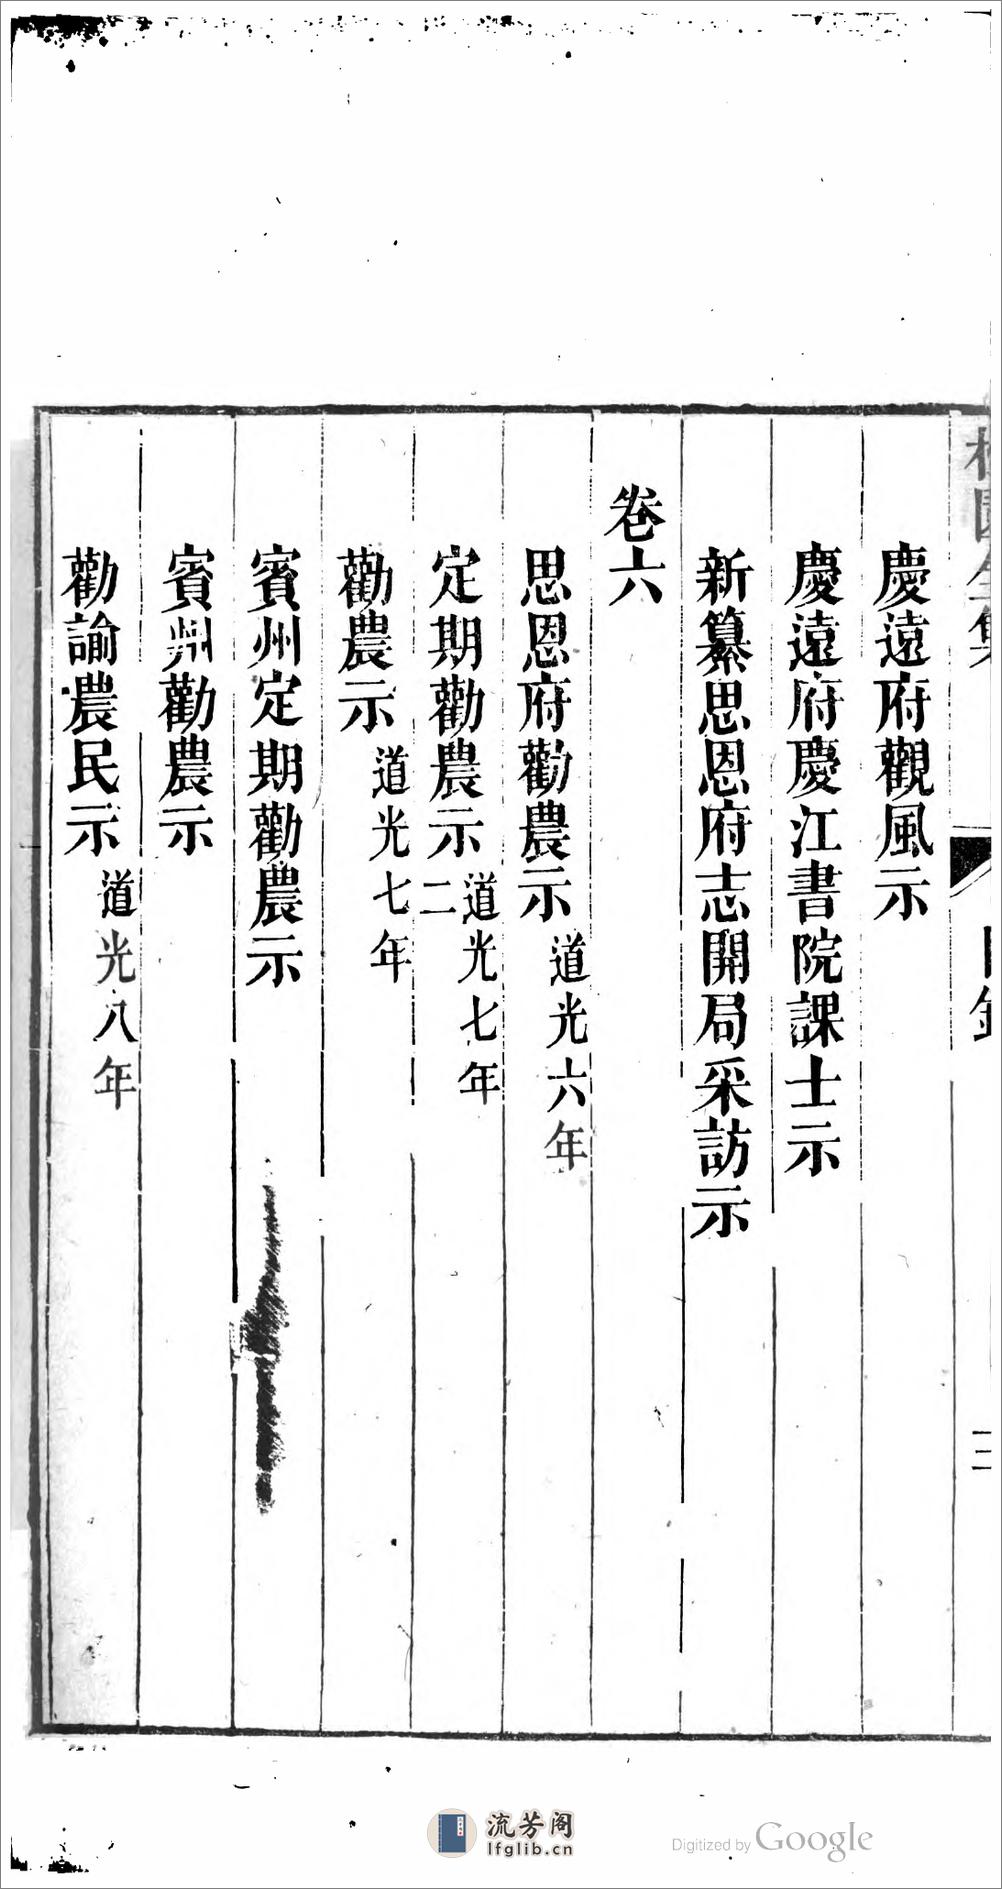 慶遠府觀風示
慶遠府慶江書院課士示
新纂思恩府志開局采訪示
卷六
思恩府勸農示 道光六年
定期勸農示 道光七年二
勸農示 道光七年
賓州定期勸農示
賓州勸農示
勸諭農民示 道光八年
流芳阁
lfglib.cn
Digitized by Google